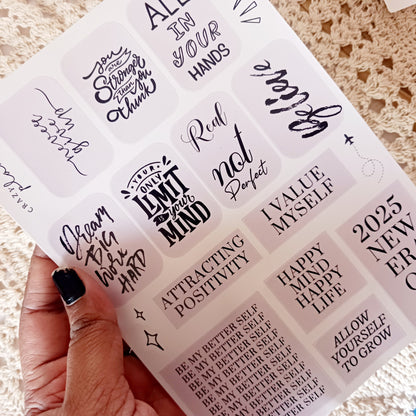 ALL
IN
YOUR
HANDS
you
are
Stronger
than you
think
Believe
Real
not
Perfect
YOUR
ONLY
LIMIT
is your
MIND
Dream
BIG
Work
HARD
I VALUE
MYSELF
2025
NEW
ATTRACTING
POSITIVITY
HAPPY
MIND
HAPPY
LIFE
ALLOW
YOURSELF
TO GROW
BE MY BETTER SELF
BE MY BETTER SELF
BE MY BETTER SELF
BE MY BETTER SELF
BE MY BETTER SELF
BE MY BETTER SELF
BE MY BETTER SELF